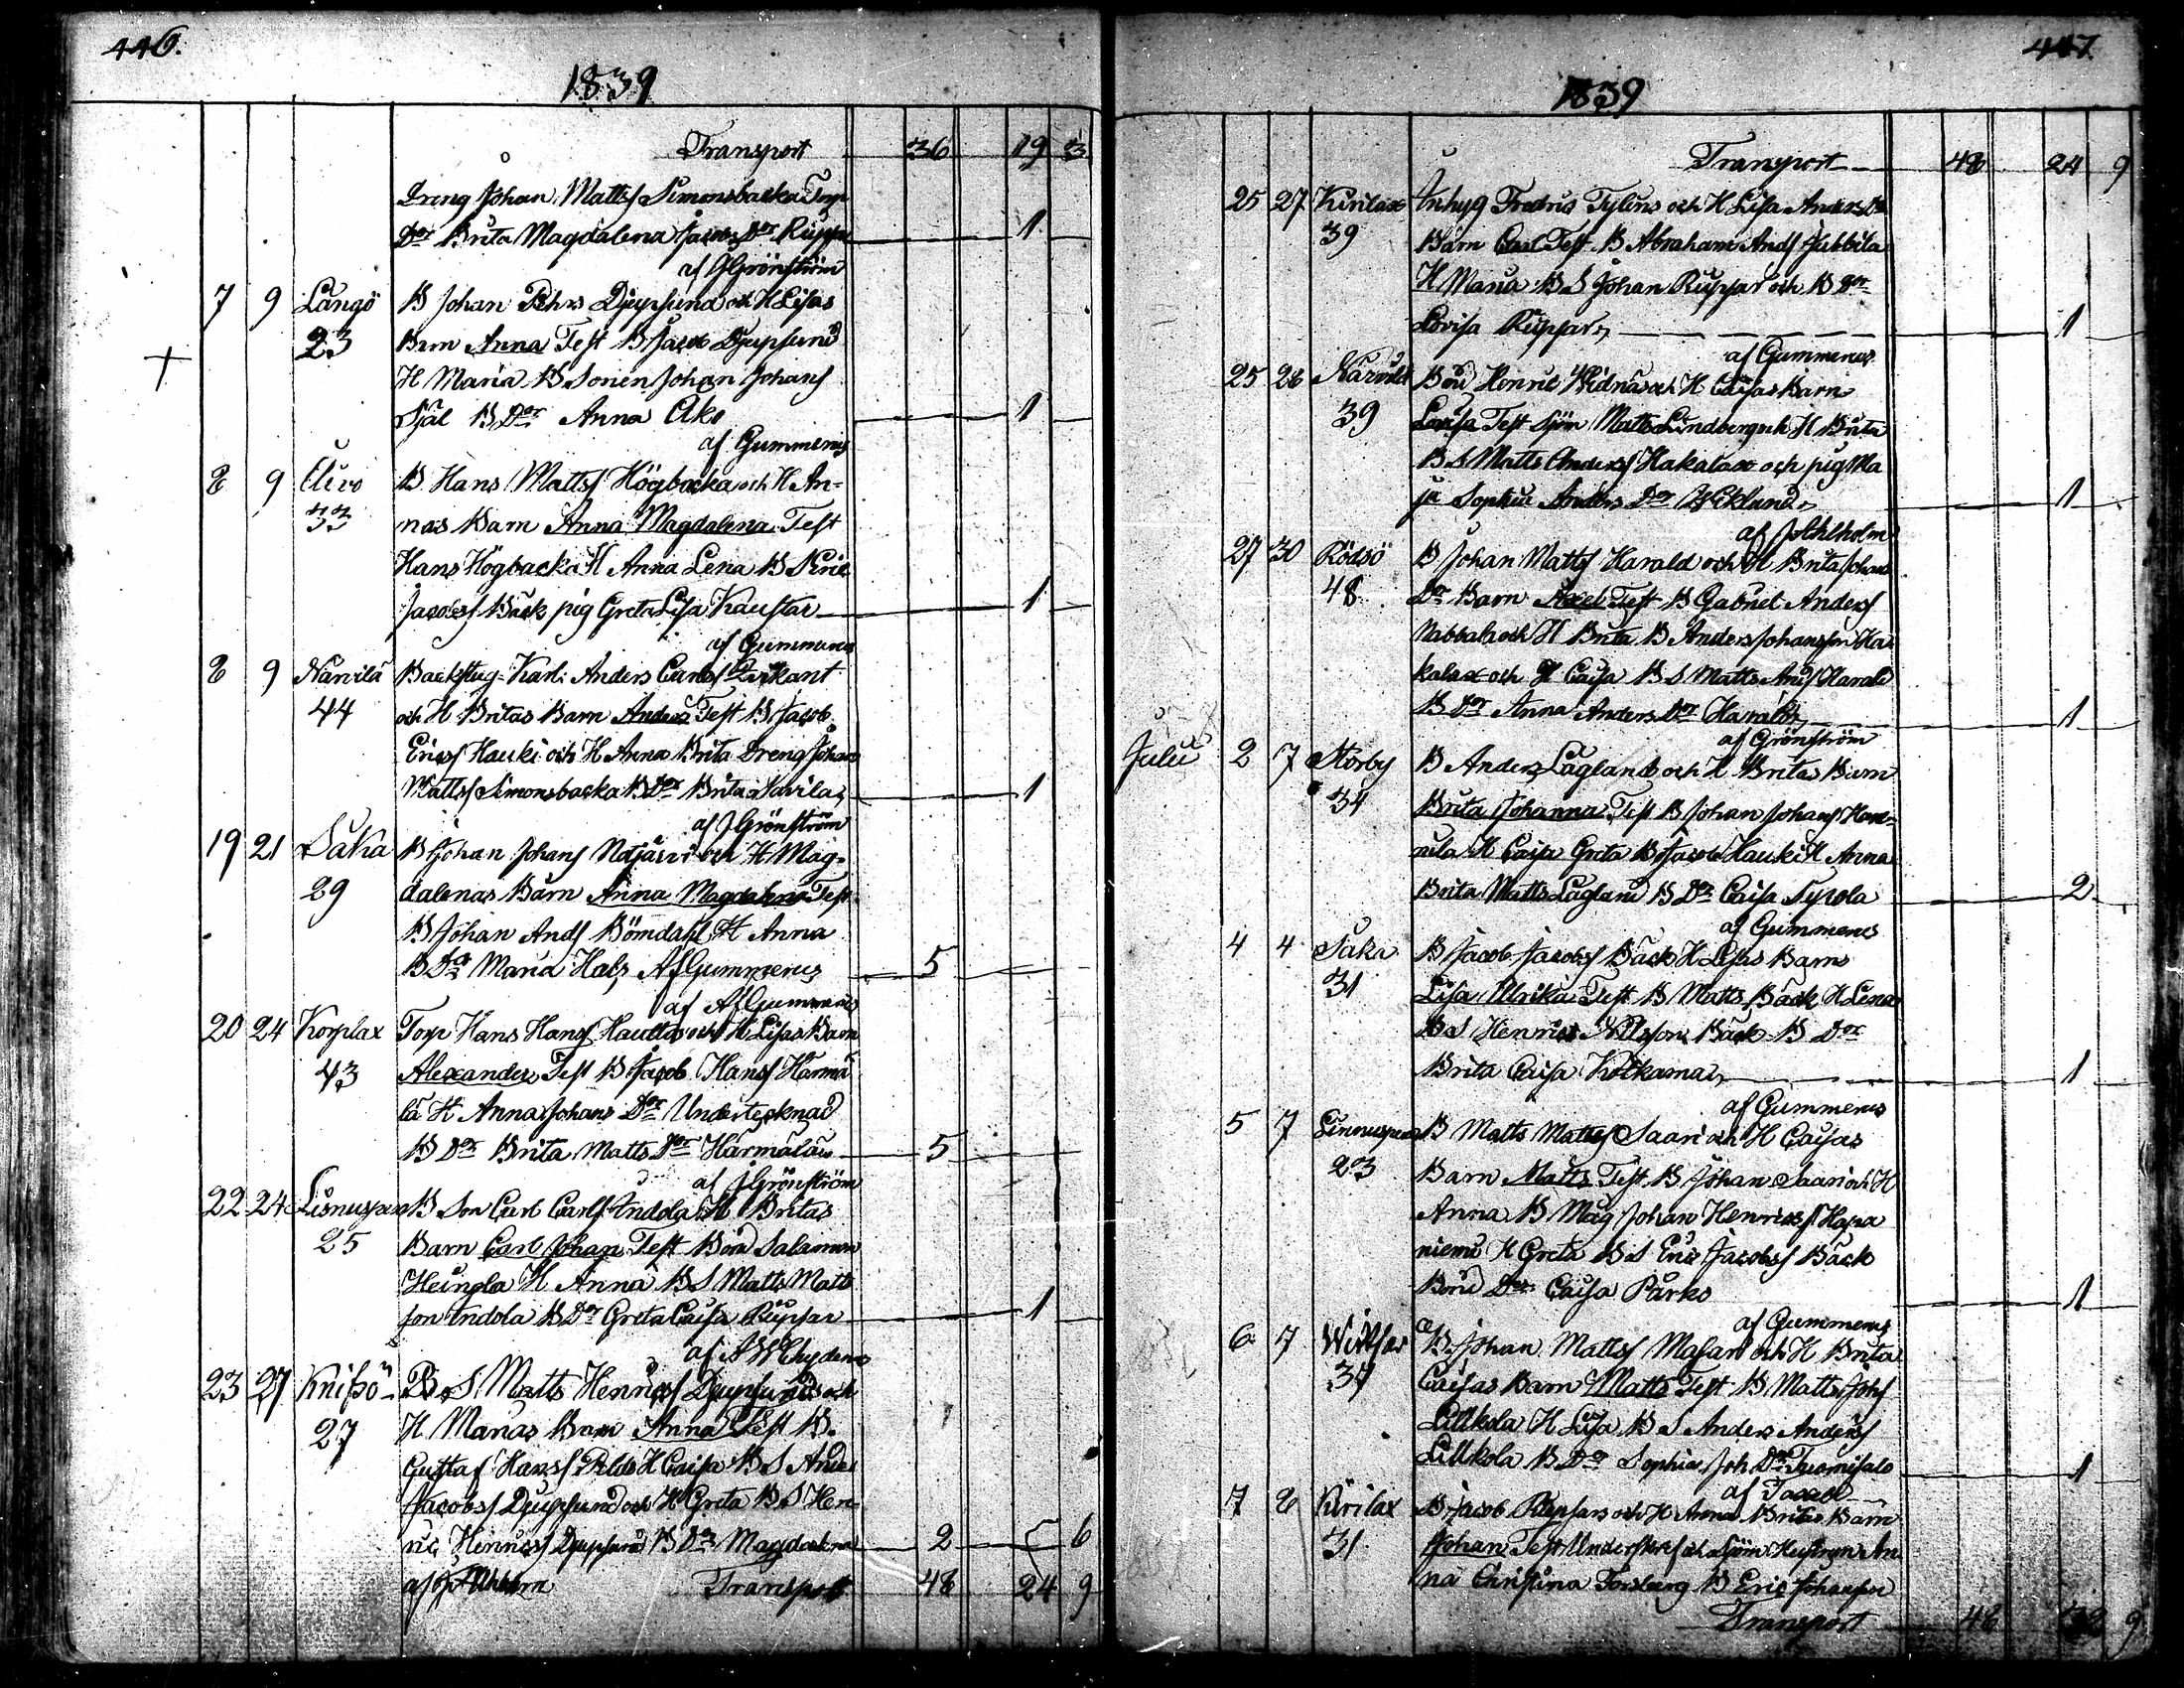 446.
1839
Transport 36 19 3
Dreng Johan Mattsſ Simonsbacka Torp
Dor Brita Magdalena Jacobs Dor
1
af JGrönström
7 9 Långö B Johan Pehrs Djupsund och H Lisas
23 Barn Anna Test B Jacob Djupsund
H Maria B Sonen Johan Johansſ
Själ B Dor Anna Ako 1
af Gummerus
8 9 Elivo B Hans Mattsſ Högbacka och H An-
33 nas Barn Anna Magdalena Test
Hans Högbacka H Anna Lena B
Jacobsſ Bäck pig Greta Lisa Kaustar 1
af Gummerus
8 9 Närvilä Backstug Karl Anders Carlsſ
44 och H Britas Barn Anders Test B Jacob
Ericsſ Hauki och H Anna Brita Dreng Johan
Mattsſ Simonsbacka B Dor Brita 1
af JGrönström
19 21 Såka B Johan Johansſ och H Mag-
29 dalenas Barn Anna Magdalena Test
B Johan Andsſ Börndahl H Anna
B Dr Maria Hals AfGummerus 5
af AfGummerus
20 24 Korplax Torp Hans Hansſ och H Lisas Barn
43 Alexander Test B Jacob Hansſ Härmä
lä H Anna Johans Dor Undertecknad
B Dor Brita Matts Dor Härmälä 5
af JGrönström
22 24 Linnuspera B Son Carl Carlsſ Indola H Britas
25 Barn Carl Johan Test Bönd Salamon
Heingla H Anna B S Matts Matts
son Indola B Dor Greta Caisa Rüpsar 1
af A W Chydenius
23 27 Knifsö B S Matts Henricsſ Djupsunds och
27 H Marias Barn Anna Test B
Gustaf Hansſ H Caisa B S Ander
Jacobsſ Djupsund och H Greta B S Hen-
ric Henricsſ Djupsund B Dr Magdalena 2 6
af Transport 48 24 9
447.
1839
Transport 48 24 9
25 27 Kirilax Inhyg Fredric Tylins och H Lisa Anders Dr
39 Barn Carl Test B Abraham Andsſ Jubbila
H Maria B S Johan Rüpsar och B Dor
Lovisa Rüpsar 1
af Gummerus
25 28 Närvilä Bönd Henric och H Caisas Barn
39 Lovisa Test Sjöm Matts Lindberg och H Brita
B S Matts Andersſ Hakalax och pig Ma
ja Sophia Anders Dor Wiklund 1
af
27 30 Rödsö B Johan Mattsſ Harald och H Brita Johans
48 Dr Barn Axel Test B Gabriel Andersſ
Nabbala och H Brita B Anders Johansson Ha-
kalax och H Caisa B S Matts Andsſ Harald
B Dor Anna Anders Dor Harald 1
af Grönström
Julii 2 7 Storby B Anders Lagland och H Britas Barn
34 Brita Johanna Test B Johan Johansſ
H Caisa Greta B Jacob Hauki H Anna
Brita Matts Lagland B Dr Caisa 2
af Gummerus
4 4 Såka B Jacob Jacobsſ Bäck H Lisas Barn
31 Lisa Ulrika Test B Matts Bäck H Lena
B S Henric Nilsson Bäck B Dor
Brita Caisa 1
af Gummerus
5 7 Linnuspera B Matts Mattsſ Saari och H Caisas
23 Barn Matts Test B Johan Saari och H
Anna B Måg Johan Henricsſ Hapa
niemi H Greta B S Eric Jacobsſ Bäck
Bond Dor Caisa Parko 1
af Gummerus
6 7 B Johan Mattsſ Masar och H Brita
37 Caisas Barn Matts Test B Matts Johsſ
Lillkola H Lisa B S Anders Andersſ
Lillkola B Dr Sophia Joh Dr Tuomisalo 1
af
7 8 Kirilax B Jacob Rüpsars och H Anna Britas Barn
31 Johan Test Underskref och Sjöm Hustrun An
na Christina Forsberg B Eric Johansson
Transport 48 32 9